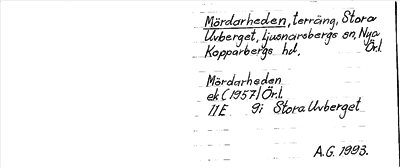 Mördarheden, terräng, Stora
Uvberget, Ljusnarsbergs sn, Nya
Kopparbergs hd, Örl.
Mördarheden
ek (1957) Ör.l.
11E 9i Stora Uvberget
A.G. 1993.